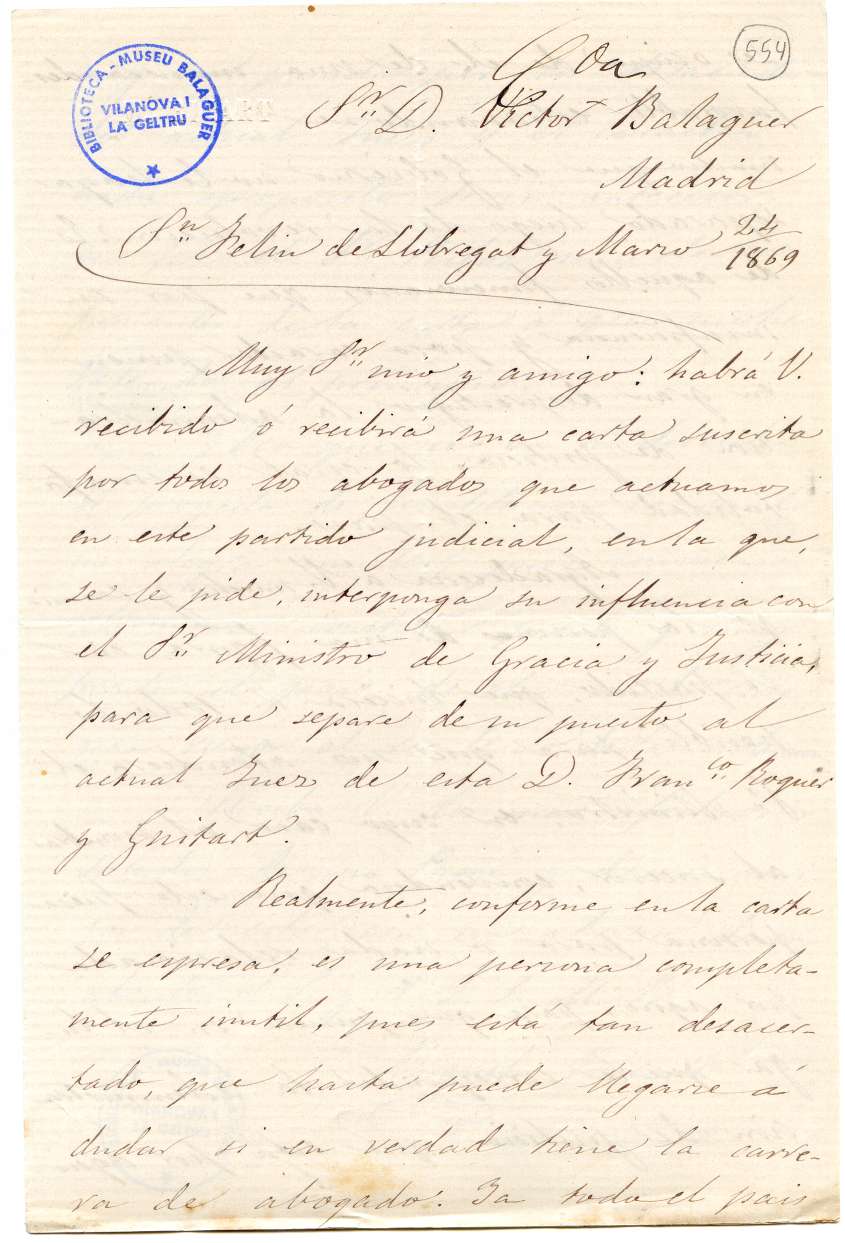 554
BIBLIOTECA - MUSEU BALAGUER
VILANOVA I
LA GELTRU
Sr. D. Victor Balaguer
Madrid
Sn Feliu de Llobregat y Marzo 24/1869
Muy Sr. mio y amigo: habrá V.
recibido ó recibirá una carta suscrita
por todos los abogados que actuamos
en este partido judicial, en la que,
se le pide, interponga su influencia con
el Sr. Ministro de Gracia y Justicia,
para que separe de su puesto al
actual Juez de esta D. Fran.co Roquer
y Guitart.
Realmente, conforme en la carta
se espresa, es una persona completa-
mente inutil, pues está tan desacer-
tado, que hasta puede llegarse á
dudar si en verdad tiene la carre-
ra de abogado. Ya todo el pais